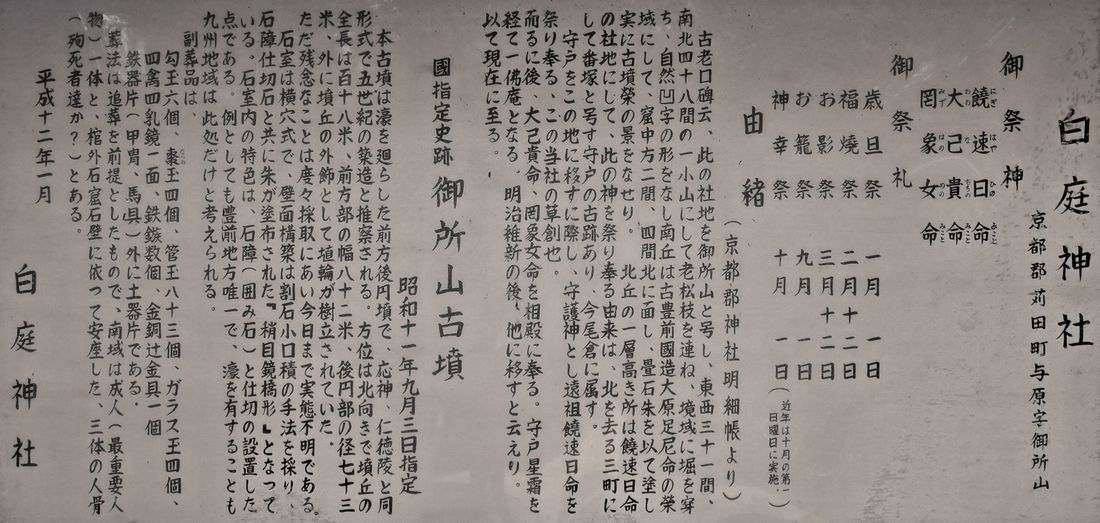 白庭神社
京都郡苅田町与原字御所山
御祭神
饒速日命
にぎはやひのみこと
大己貴命
罔象女命
みずはのめのみこと
御祭礼
歳旦祭 一月一日
福燒祭 二月十二日
お影祭 三月十二日
お籠祭 九月一日
神幸祭 十月一日(近年は十月の第一日曜日に実施。)
由緒
(京都郡神社明細帳より)
古老口碑云、此の社地を御所山と号し、東西三十一間、
南北四十八間の一小山にして老松枝を連ね、境域に堀を穿
ち、自然凹字の形をなし南丘は古豊前國造大原足尼命の榮
域にして、窟中方二間、四間北に面し、畳石朱を以て塗し
実に古墳榮の景をなせり。北丘の一層高き所は饒速日命
の社地にして、此の神を祭り奉る由来は、北を去る三町に
して番塚と号す守戸の古跡あり、今尾倉に属す。
守戸をこの地に移すに際し、守護神とし遠祖饒速日命を
祭り奉る、この当社の草創也。
而るに後、大己貴命、罔象女命を相殿に奉る。守戸星霜を
経て一佛庵となる。明治維新の後、他に移すと云えり。
以て現在に至る。
國指定史跡 御所山古墳
昭和十一年九月三日指定
本古墳は濠を廻らした前方後円墳で、応神、仁徳陵と同
形式で五世紀の築造と推察される。方位は北向きで墳丘の
全長は百十八米、前方部の幅八十二米、後円部の径七十三
米、外に墳丘の外飾として埴輪が樹立されていた。
ただ残念なことは度々採取にあい今日まで実態不明である。
石室は横穴式で、壁面構築は割石小口積の手法を採り、
石障仕切石と共に朱が塗布された『梢目鏡橋形』となって
いる。石室内の特色は、石障(囲み石)と仕切の設置した
点である。例としても豊前地方唯一で、濠を有することも
九州地域は此処だけと考えられる。
副葬品は、
勾玉六個、棗玉四個、管玉八十三個、ガラス玉四個、
四禽四乳鏡一面、鉄鏃数個、金銅辻金具一個
鉄器片(甲冑、馬具)外に土器片である。
葬法は追葬を前提としたもので、南域は成人(最重要人
物)一体と、棺外石窟石壁に依って安座した、三体の人骨
(殉死者達か?)とある。
平成十二年一月
白庭神社